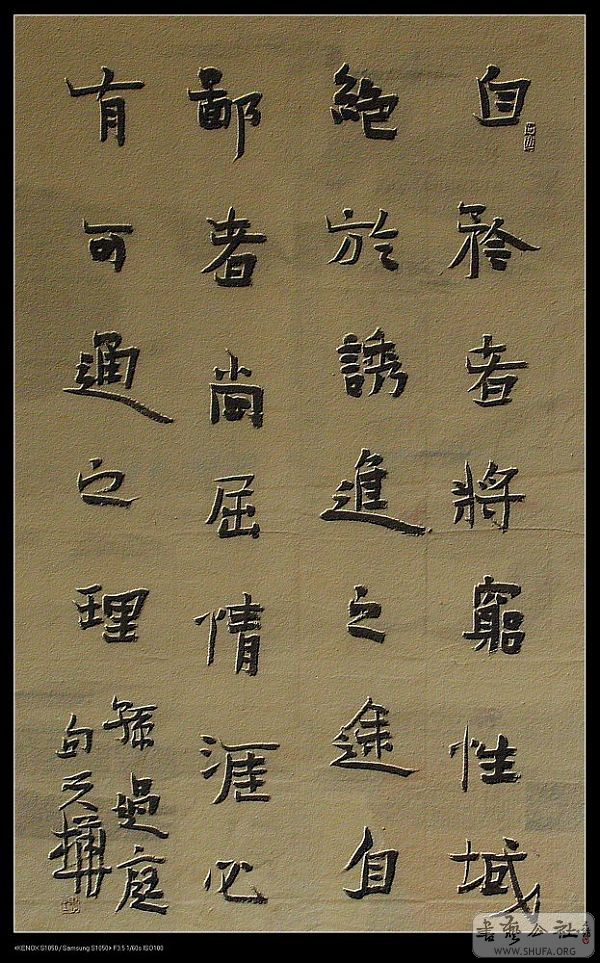 自矜者將窮性域
絶於誘進之途自
鄙者尚屈情涯必
有可通之理
孫過庭
句
«KENOX S1050 / Samsung S1050» F3.5 1/60s ISO100
書藝公社
WWW.SHUFA.ORG